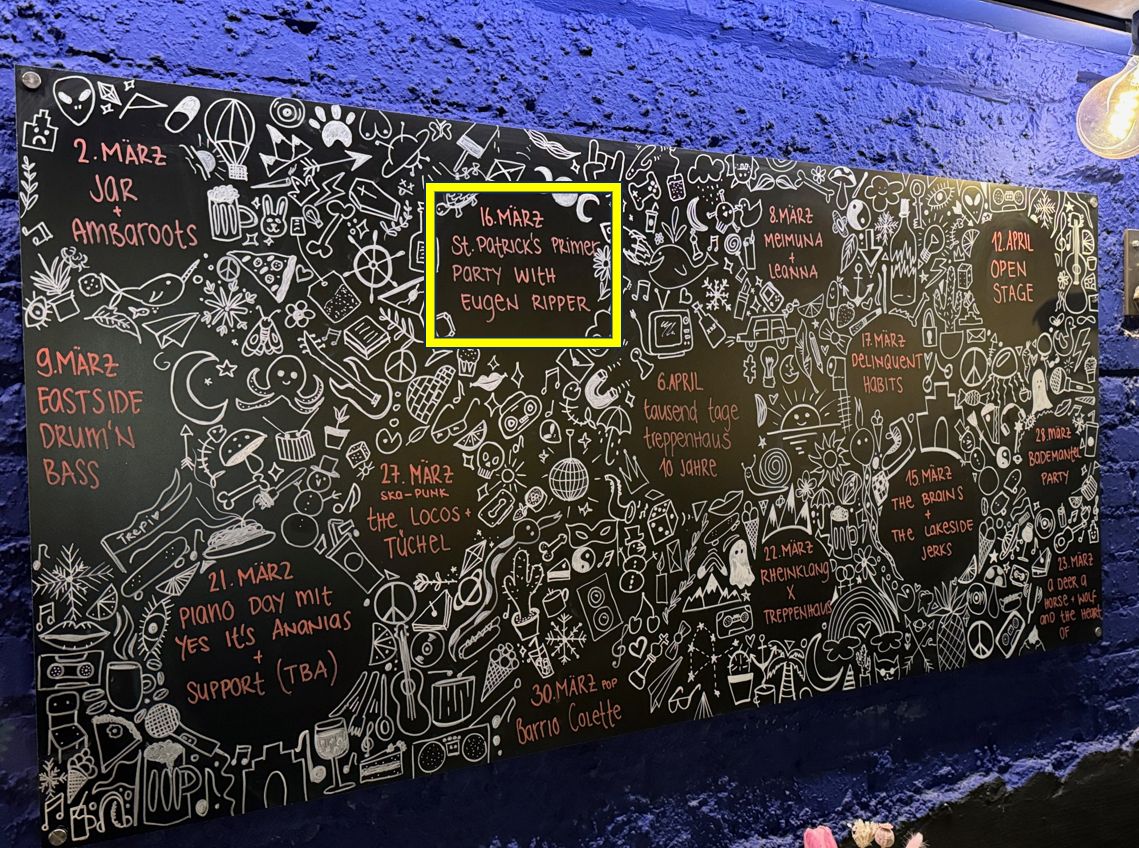 2. MÄRZ
JAR
+
AMBAROOTS
16. MÄRZ
St. PATRICK'S PRIMER
PARTY WITH
EUGEN RIPPER
8. MÄRZ
MEIMUNA
+
LEANNA
12. APRIL
OPEN
STAGE
9. MÄRZ
EASTSIDE
DRUM'N
BASS
27. MÄRZ
SKA-PUNK
the LOCOS +
TÜCHEL
6. APRIL
tausend tage
treppenhaus
10 JAHRE
17. MÄRZ
DELINQUENT
HABITS
28. MÄRZ
BADEMANTEL
PARTY
15. MÄRZ
THE BRAINS
+
THE LAKESIDE
JERKS
Trepi
21. MÄRZ
PIANO DAY MIT
YES IT'S ANANIAS
+
SUPPORT (TBA)
22. MÄRZ
RHEINKLANG
X
TREPPENHAUS
23. MÄRZ
A DEER A
HORSE + WOLF
AND THE HEART
OF
30. MÄRZ POP
Barrio Colette